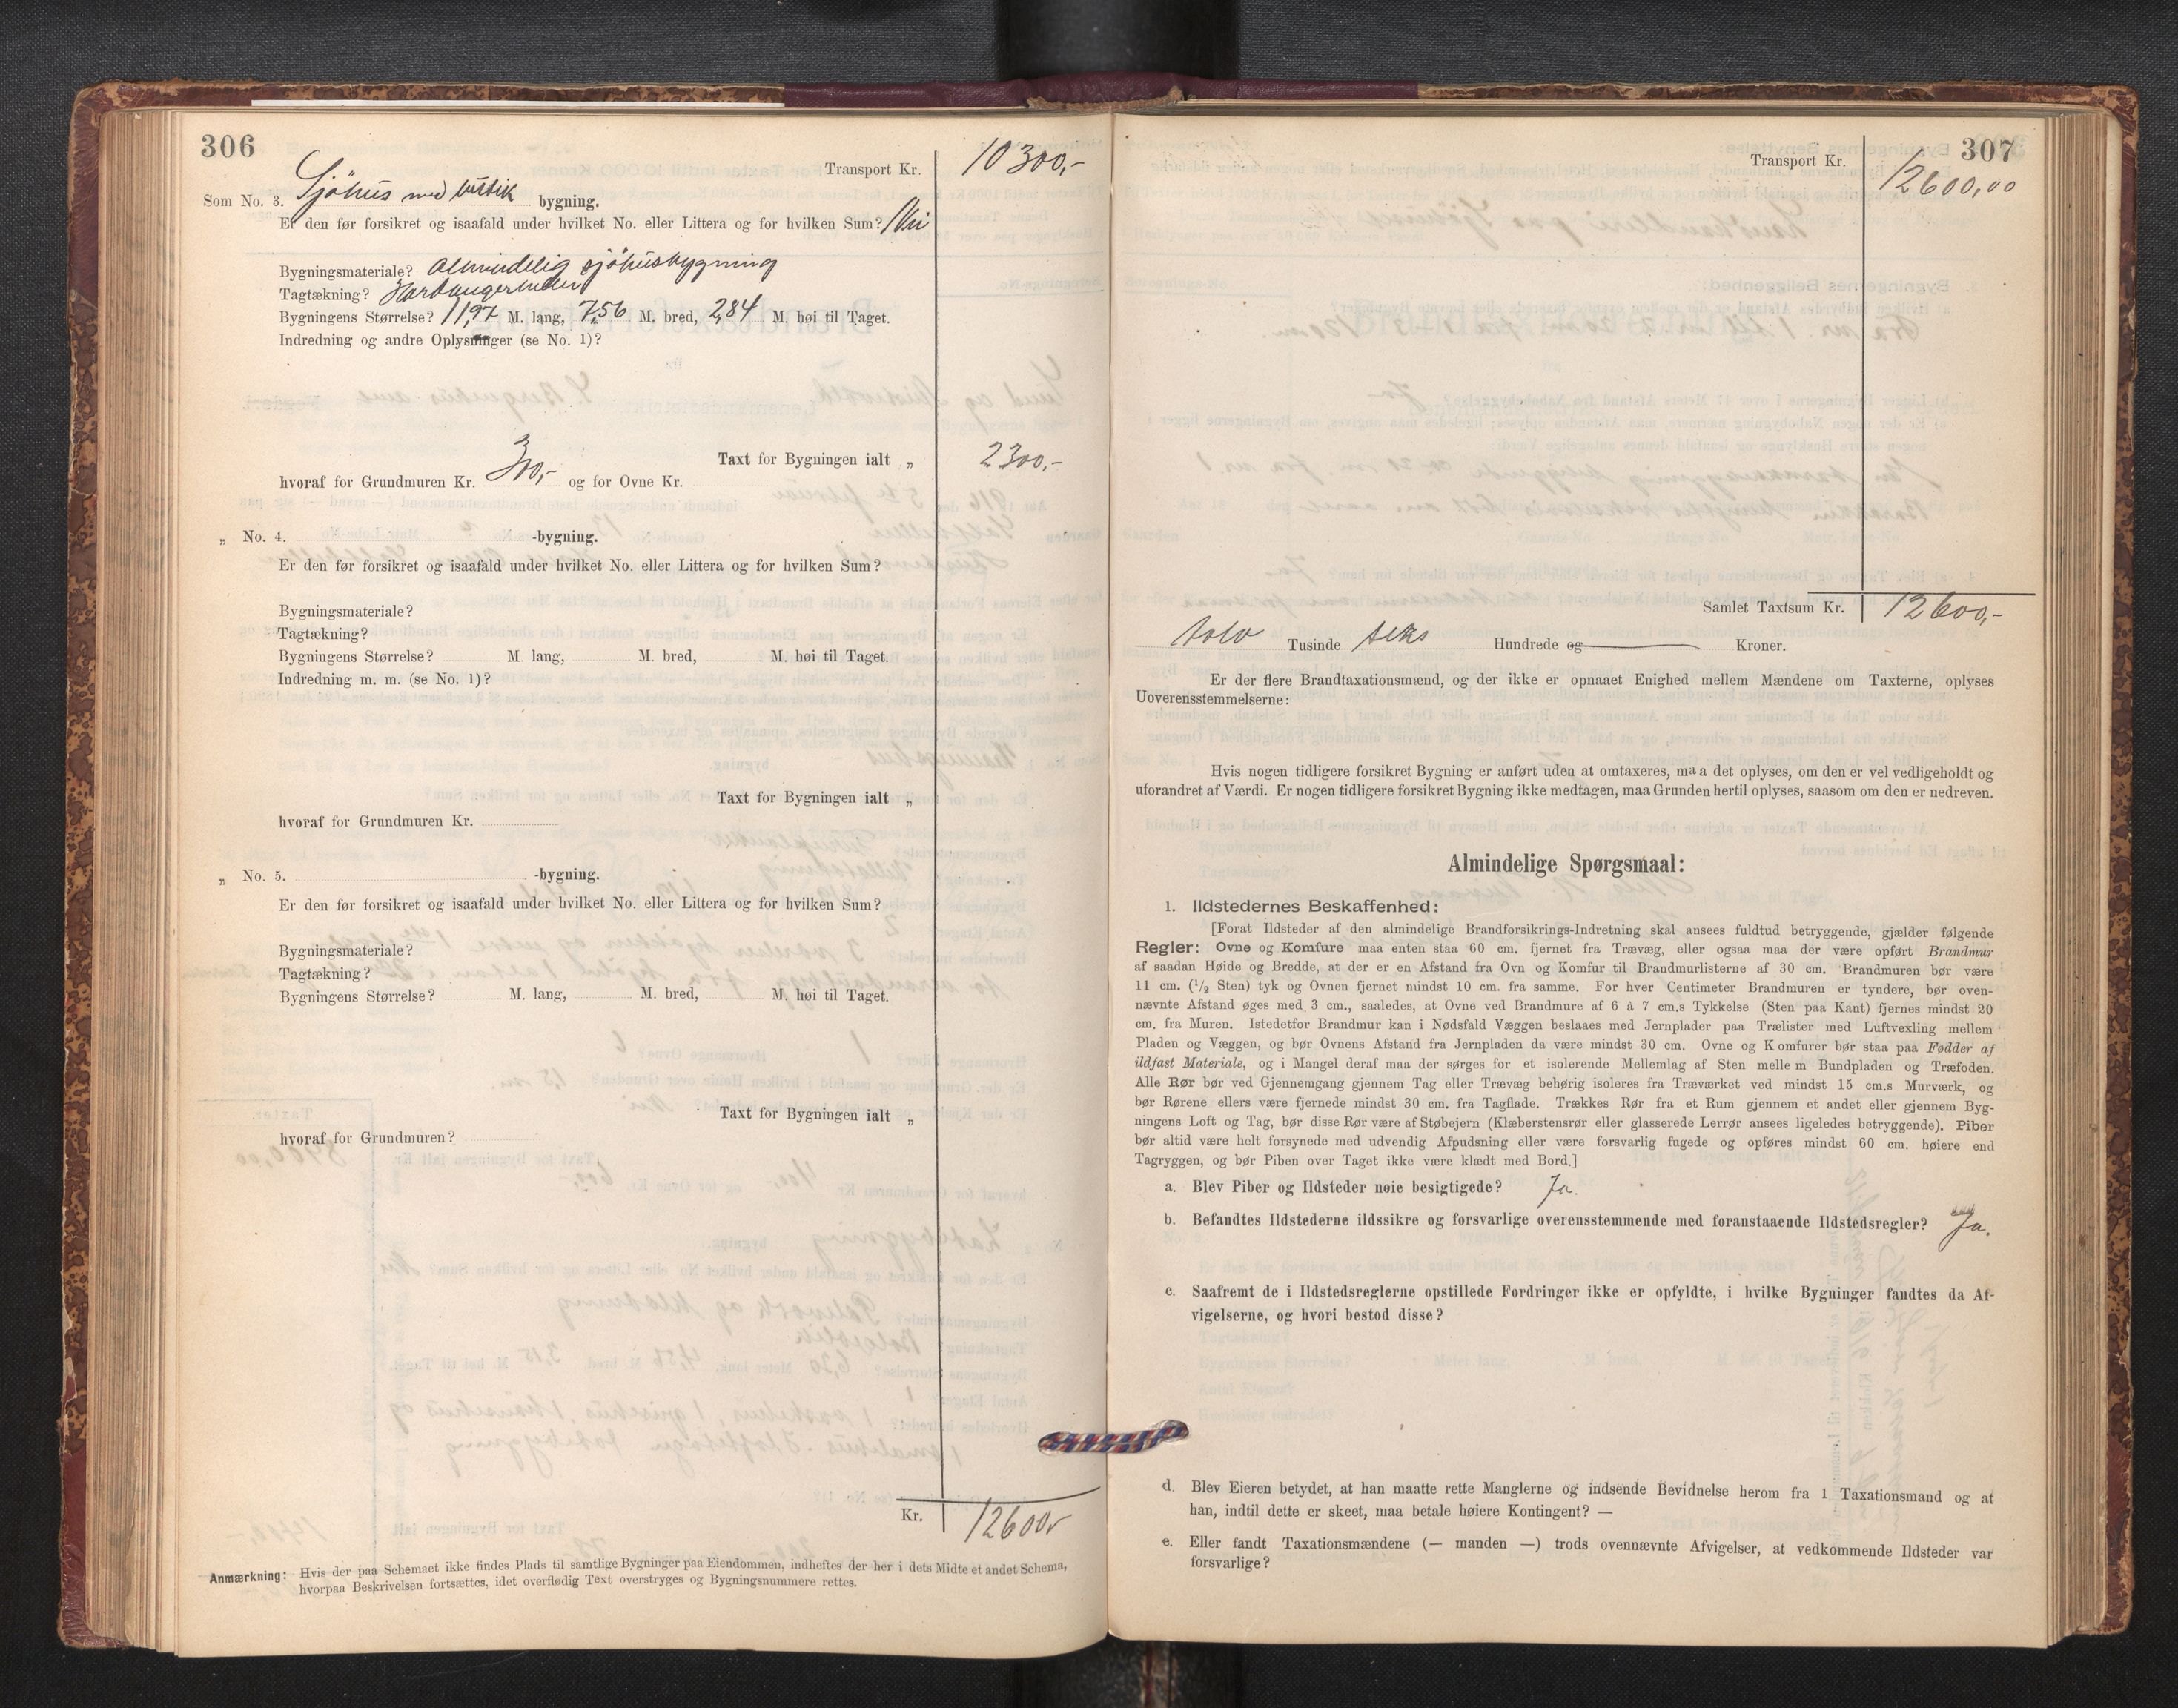 306
Transport Kr. 10300,-
Som No. 3. Sjöhus med butik bygning.
Er den før forsikret og isaafald under hvilket No. eller Littera og for hvilken Sum? Nei
Bygningsmateriale? Almindelig sjöhusbygning
Tagtækning?
Bygningens Størrelse? 11,97 M. lang, 7,56 M. bred, 2,84 M. høi til Taget.
Indredning og andre Oplysninger (se No. 1)?
Taxt for Bygningen ialt „ 2300,-
hvoraf for Grundmuren Kr. 300,- og for Ovne Kr.
„ No. 4. -bygning.
Er den før forsikret og isaafald under hvilket No. eller Littera og for hvilken Sum?
Bygningsmateriale?
Tagtækning?
Bygningens Størrelse? M. lang, M. bred, M. høi til Taget.
Indredning m. m. (se No. 1)?
Taxt for Bygningen ialt „
hvoraf for Grundmuren Kr.
„ No. 5. -bygning.
Er den før forsikret og isaafald under hvilket No. eller Littera og for hvilken Sum?
Bygningsmateriale?
Tagtækning?
Bygningens Størrelse? M. lang, M. bred, M. høi til Taget.
Taxt for Bygningen ialt „
hvoraf for Grundmuren?
Kr. 12600,-
Anmærkning: Hvis der paa Schemaet ikke findes Plads til samtlige Bygninger paa Eiendommen, indheftes der her i dets Midte et andet Schema,
hvorpaa Beskrivelsen fortsættes, idet overflødig Text overstryges og Bygningsnummere rettes.
307
Transport Kr. 12600,00
Samlet Taxtsum Kr. 12600,-
tolv Tusinde seks Hundrede og Kroner.
Er der flere Brandtaxationsmænd, og der ikke er opnaaet Enighed mellem Mændene om Taxterne, oplyses
Uoverensstemmelserne:
Hvis nogen tidligere forsikret Bygning er anført uden at omtaxeres, maa det oplyses, om den er vel vedligeholdt og
uforandret af Værdi. Er nogen tidligere forsikret Bygning ikke medtagen, maa Grunden hertil oplyses, saasom om den er nedreven.
Almindelige Spørgsmaal:
1. Ildstedernes Beskaffenhed:
[Forat Ildsteder af den almindelige Brandforsikrings-Indretning skal ansees fuldtud betryggende, gjælder følgende
Regler: Ovne og Komfure maa enten staa 60 cm. fjernet fra Trævæg, eller ogsaa maa der være opført Brandmur
af saadan Høide og Bredde, at der er en Afstand fra Ovn og Komfur til Brandmurlisterne af 30 cm. Brandmuren bør være
11 cm. (1/2 Sten) tyk og Ovnen fjernet mindst 10 cm. fra samme. For hver Centimeter Brandmuren er tyndere, bør oven-
nævnte Afstand øges med 3 cm., saaledes, at Ovne ved Brandmure af 6 à 7 cm.s Tykkelse (Sten paa Kant) fjernes mindst 20
cm. fra Muren. Istedetfor Brandmur kan i Nødsfald Væggen beslaaes med Jernplader paa Trælister med Luftvexling mellem
Pladen og Væggen, og bør Ovnens Afstand fra Jernpladen da være mindst 30 cm. Ovne og Komfurer bør staa paa Fødder af
ildfast Materiale, og i Mangel deraf maa der sørges for et isolerende Mellemlag af Sten mellem Bundpladen og Træfoden.
Alle Rør bør ved Gjennemgang gjennem Tag eller Trævæg behørig isoleres fra Træværket ved mindst 15 cm.s Murværk, og
bør Rørene ellers være fjernede mindst 30 cm. fra Tagflade. Trækkes Rør fra et Rum gjennem et andet eller gjennem Byg-
ningens Loft og Tag, bør disse Rør være af Støbejern (Klæberstensrør eller glasserede Lerrør ansees ligeledes betryggende). Piber
bør altid være helt forsynede med udvendig Afpudsning eller være forsvarlig fugede og opføres mindst 60 cm. høiere end
Tagryggen, og bør Piben over Taget ikke være klædt med Bord.]
a. Blev Piber og Ildsteder nøie besigtigede? Ja.
b. Befandtes Ildstederne ildssikre og forsvarlige overensstemmende med foranstaaende Ildstedsregler? Ja.
c. Saafremt de i Ildstedsreglerne opstillede Fordringer ikke er opfyldte, i hvilke Bygninger fandtes da Af-
vigelserne, og hvori bestod disse?
d. Blev Eieren betydet, at han maatte rette Manglerne og indsende Bevidnelse herom fra 1 Taxationsmand og at
han, indtil dette er skeet, maa betale høiere Kontingent? —
e. Eller fandt Taxationsmændene (— manden —) trods ovennævnte Afvigelser, at vedkommende Ildsteder var
forsvarlige?